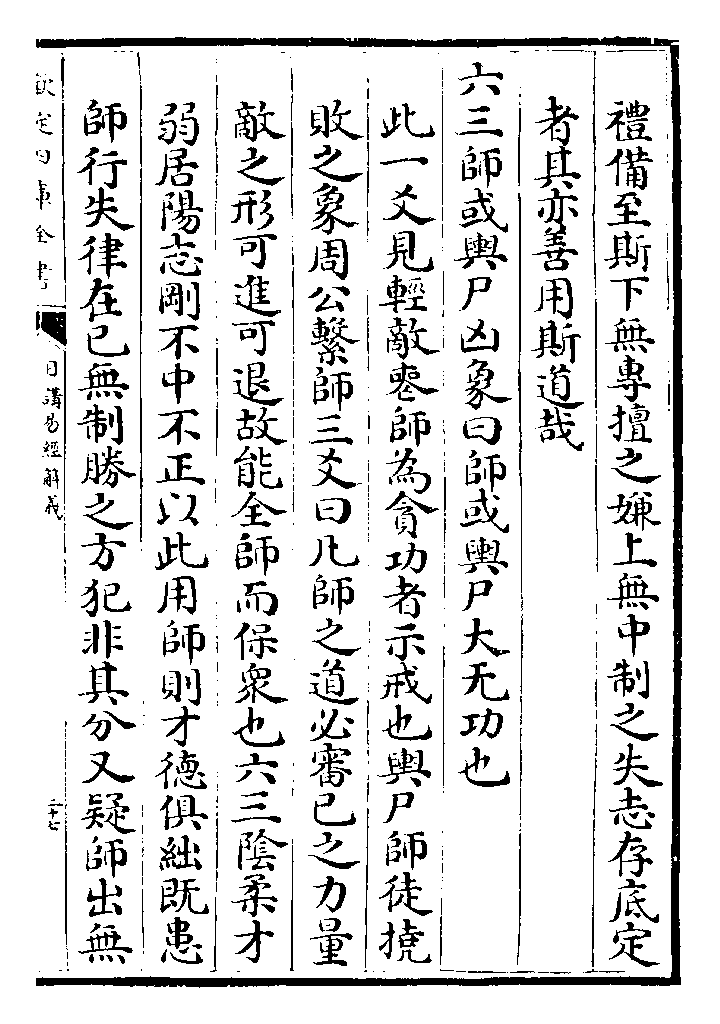 禮備至斯下無專擅之嫌上無中制之失志存底定
者其亦善用斯道哉
六三師或輿尸凶象曰師或輿尸大无功也
此一爻見輕敵喪師為貪功者示戒也輿尸師徒撓
敗之象周公繫師三爻曰凡師之道必審已之力量
敵之形可進可退故能全師而保衆也六三陰柔才
弱居陽志剛不中不正以此用師則才德俱絀既患
師行失律在已無制勝之方犯非其分又疑師出無
欽定四庫全書
日講易經解義
三十七